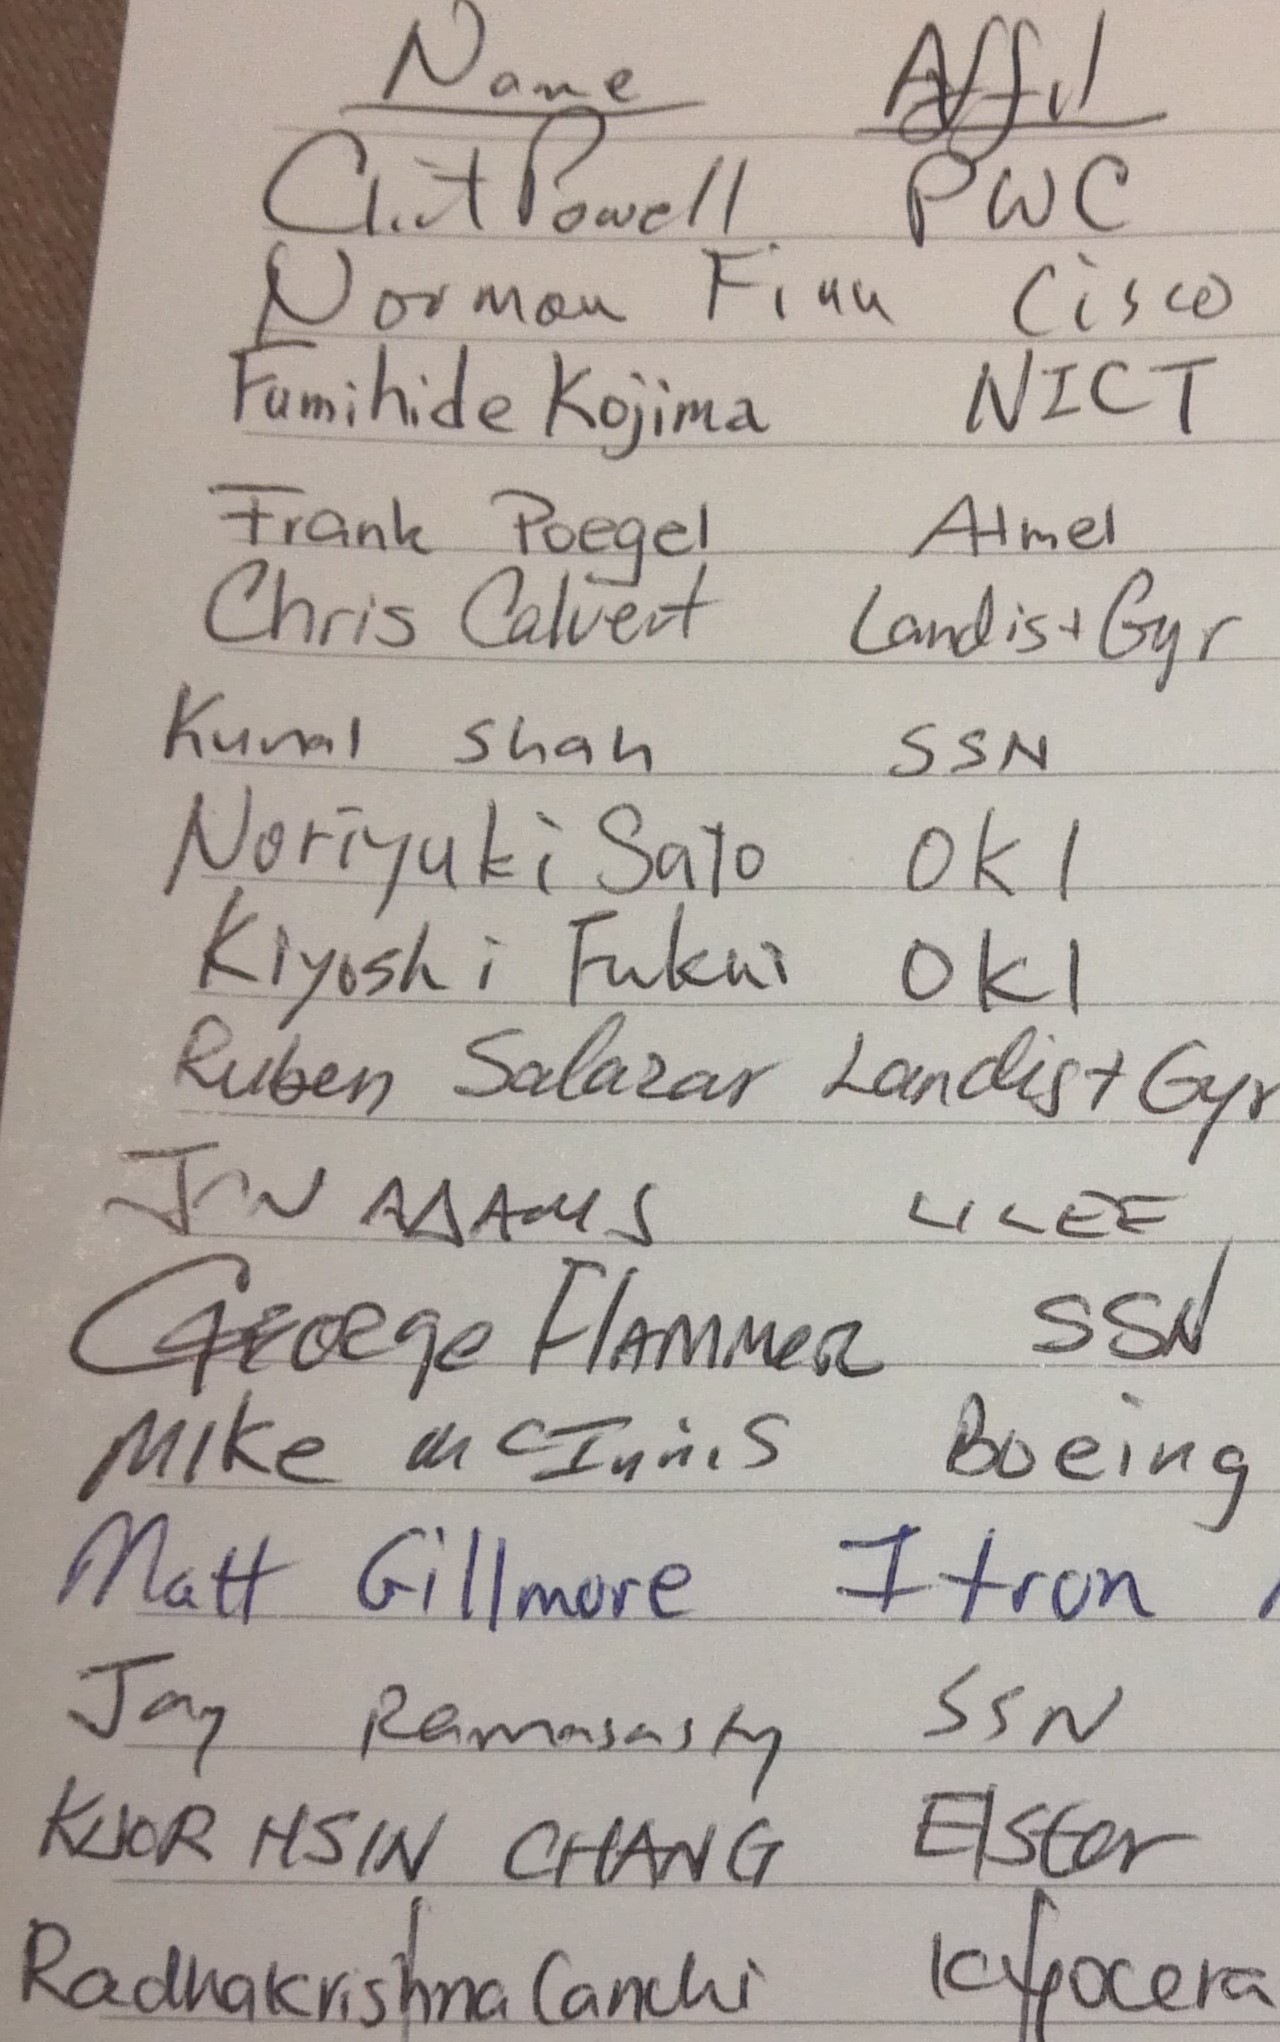 Name Affil
Clint Powell PWC
Norman Finn Cisco
Fumihide Kojima NICT
Frank Poegel Atmel
Chris Calvert Landis+Gyr
Kunal Shah SSN
Noriyuki Sato OKI
Kiyoshi Fukui OKI
Ruben Salazar Landis+Gyr
JON ADAMS LILEE
George FLAMMER SSN
Mike McInnis Boeing
Matt Gillmore Itron
Jay Ramasastry SSN
KUOR HSIN CHANG Elster
Radhakrishna Canchi Kyocera